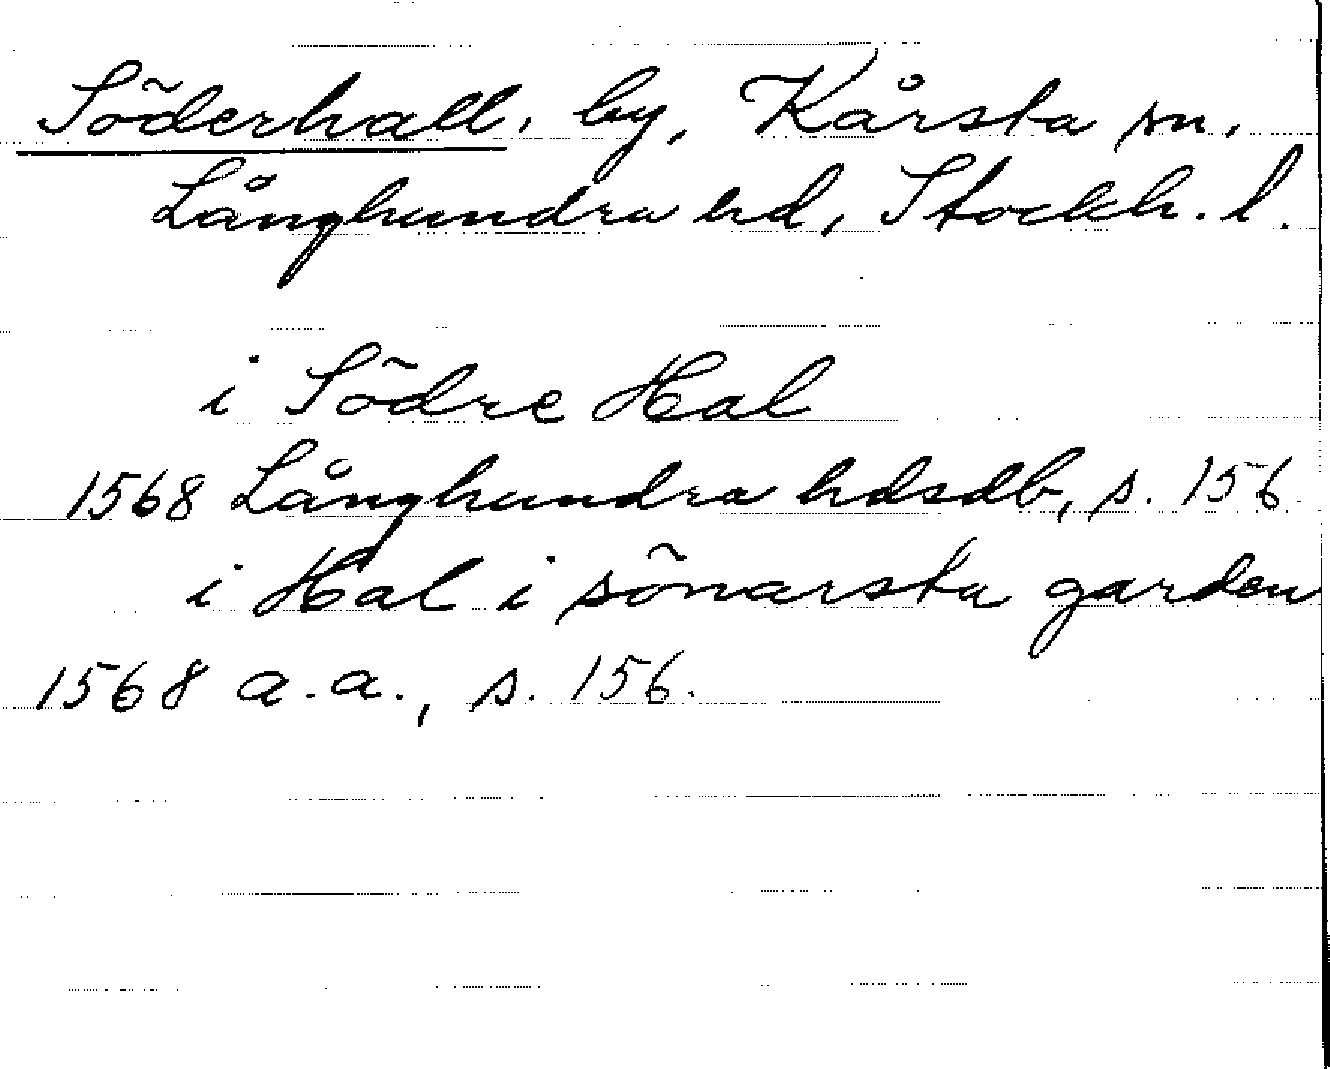 Söderhall, by, Kårsta sn.
Långhundra hd, Stockh. l.
i Södre Hal
1568 Långhundra hdsdb, s. 156
i Hal i sönarsta garden
1568 a.a., s. 156.